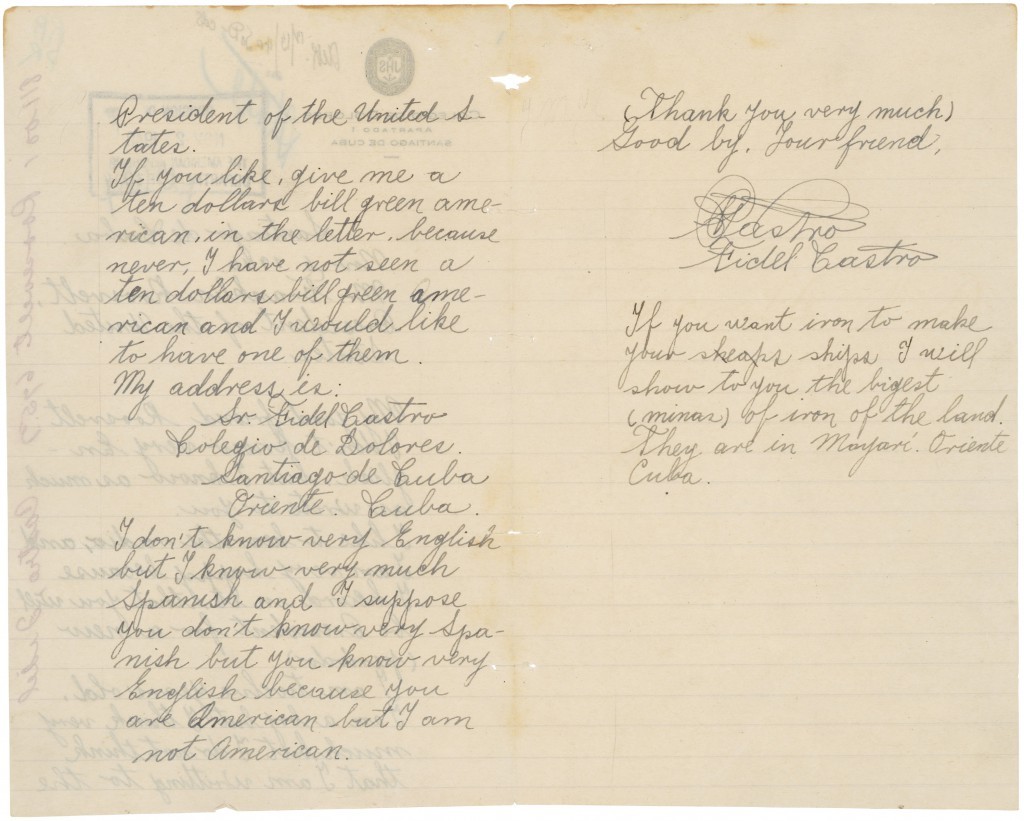 President of the United S-
tates.
If you like, give me a
ten dollars bill green ame-
rican, in the letter, because
never, I have not seen a
ten dollars bill green ame-
rican and I would like
to have one of them.
My address is:
Sr. Fidel Castro
Colegio de Dolores.
Santiago de Cuba
Oriente. Cuba.
I don't know very English
but I know very much
Spanish and I suppose
you don't know very Spa-
nish but you know very
English because you
are American but I am
not American.
(Thank you very much)
Good by. Your friend,
Castro
Fidel Castro
If you want iron to make
your ships I will
show to you the bigest
(minas) of iron of the land.
They are in Mayarí. Oriente
Cuba.
JHS
APARTADO 1
SANTIAGO DE CUBA